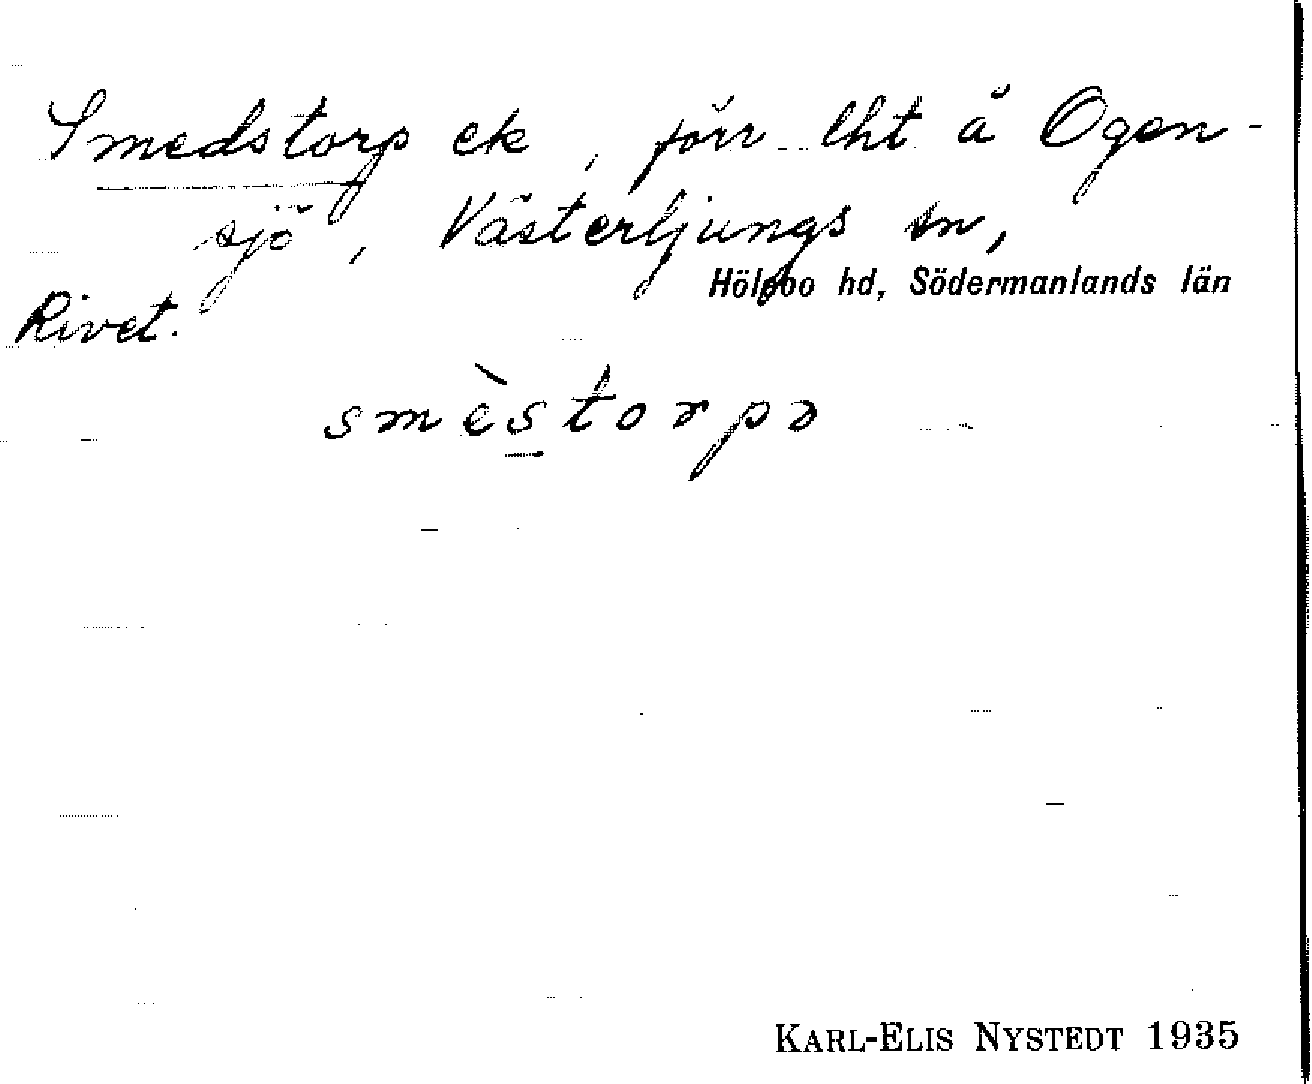 Smedstorp ek, förr lht å Ogen-
sjö, Västerljungs sn,
Hölebo hd, Södermanlands län
Rivet.
smèstorpə
KARL-ELIS NYSTEDT 1935